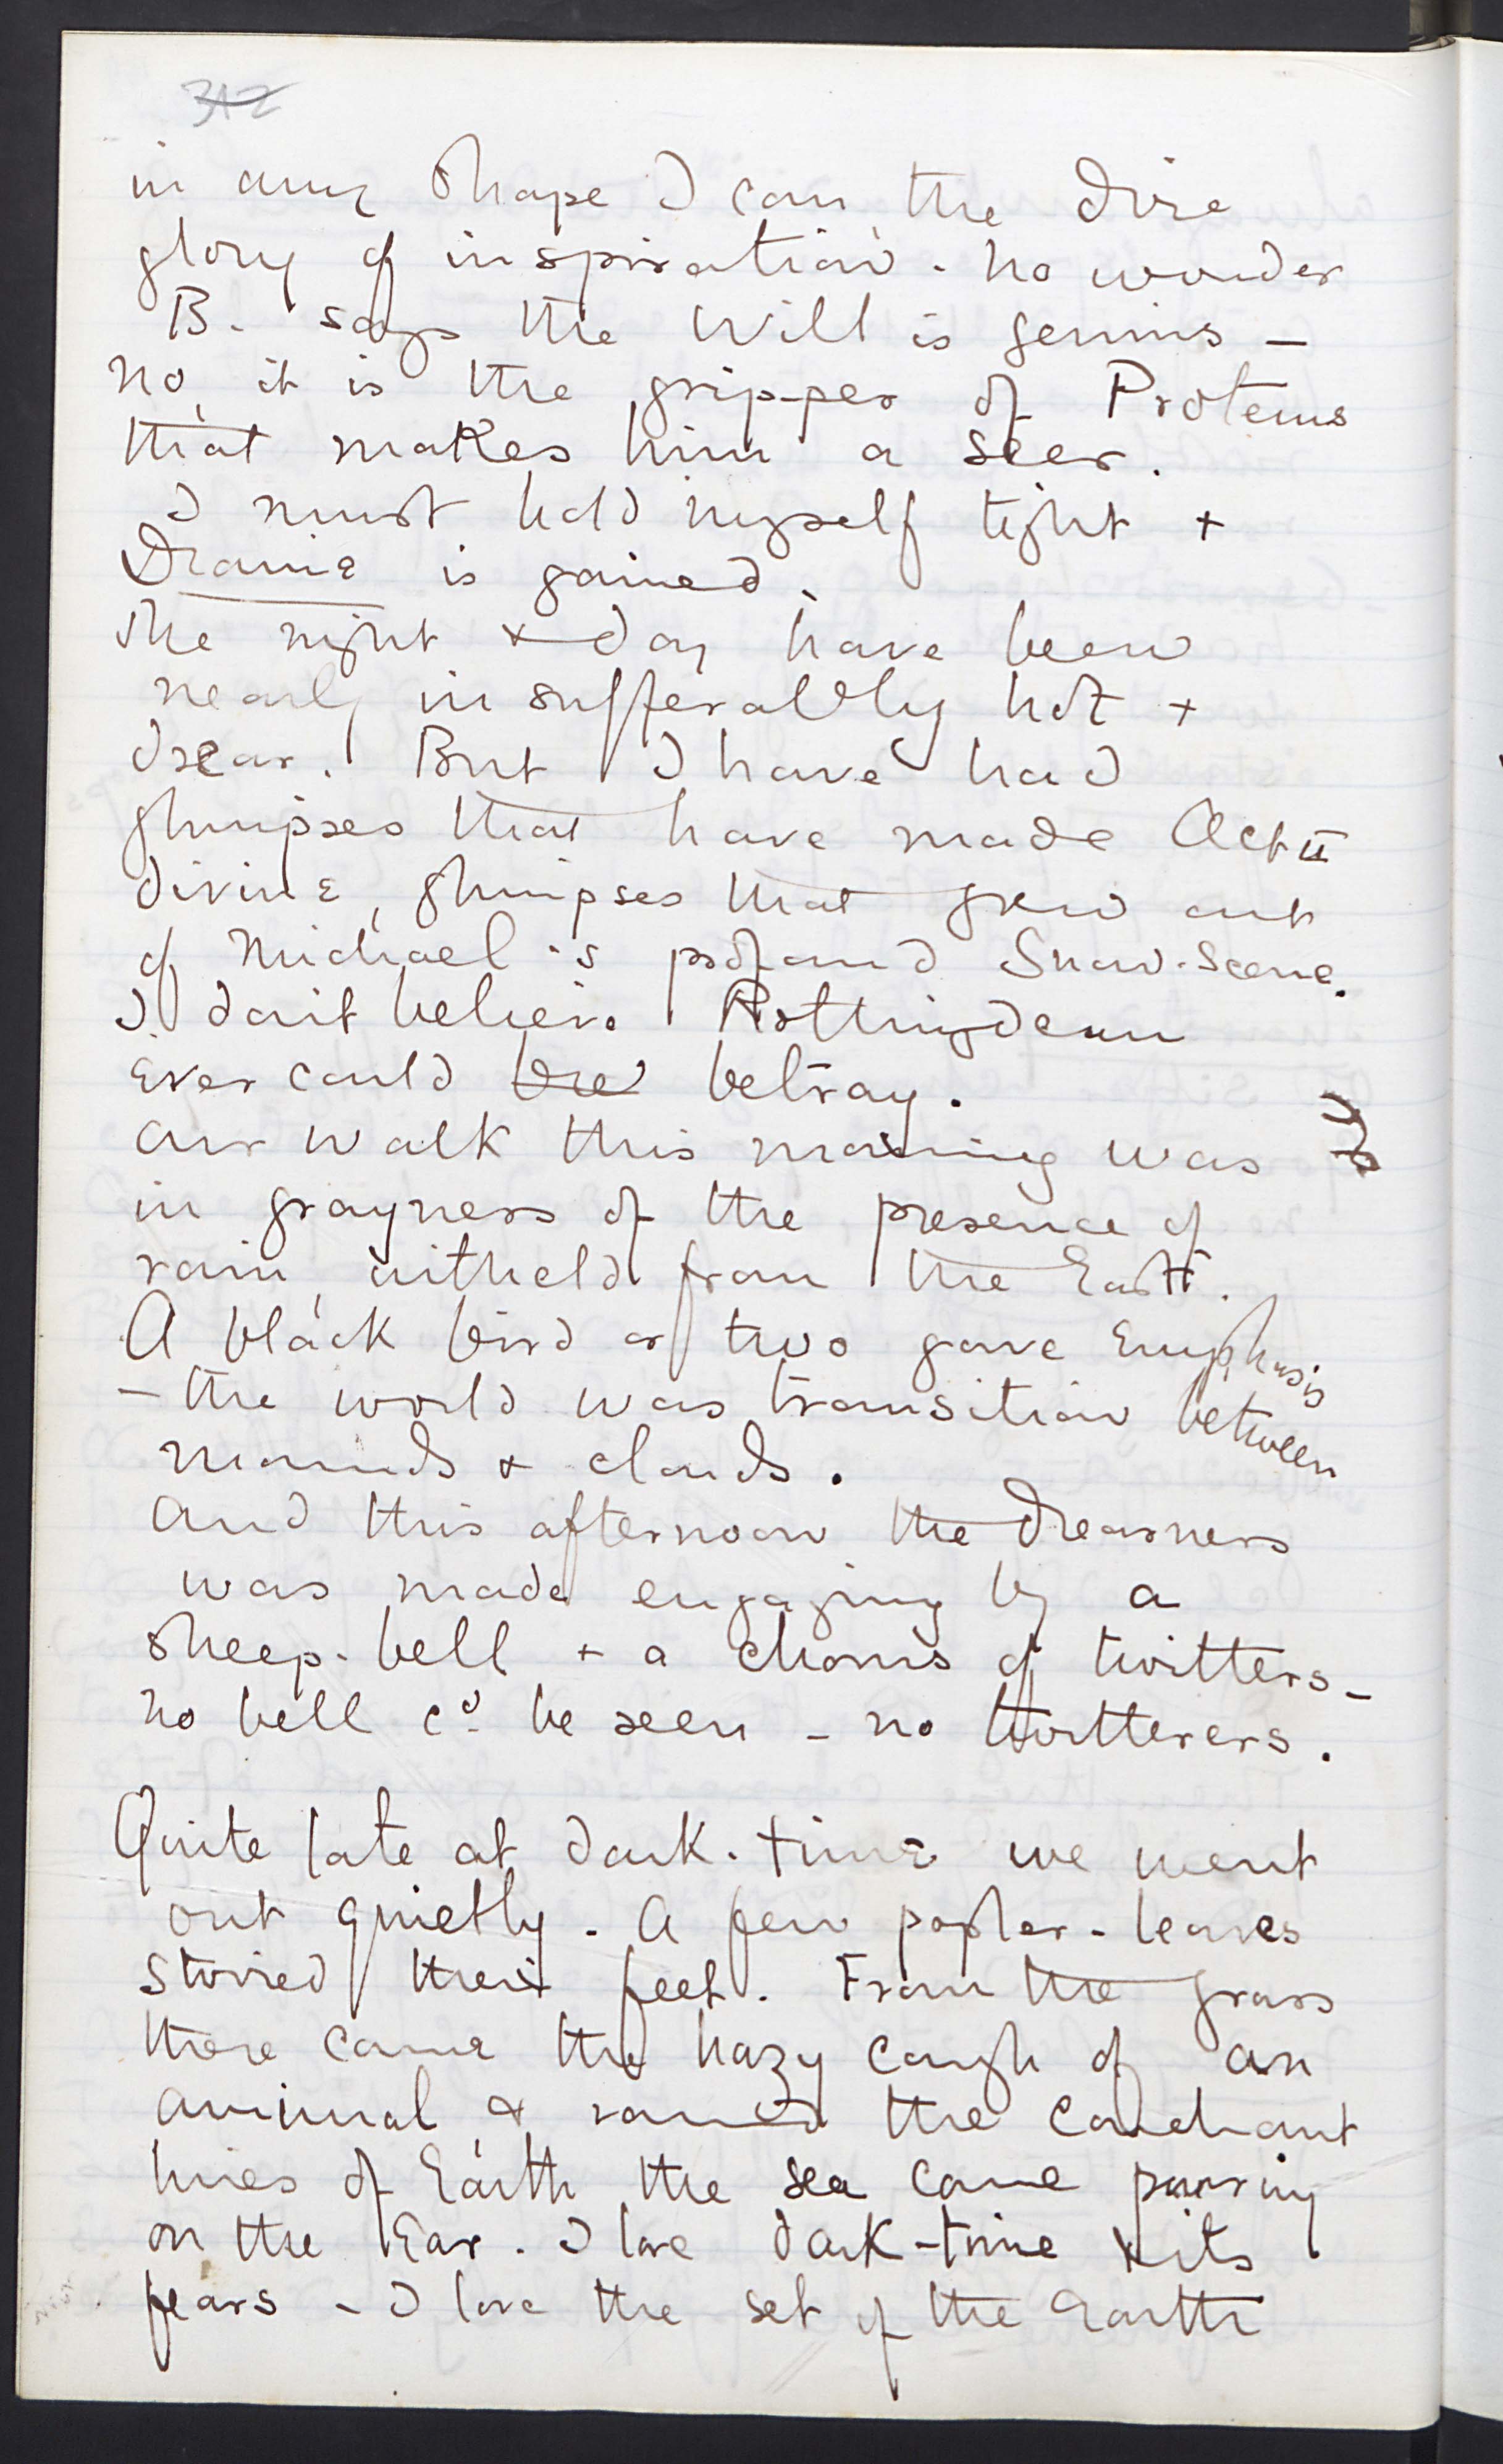 312
in any shape I can the dire
glory of inspiration. No wonder
B. says the Will is genius –
no, it is the gripper of Proteus
that makes him a seer.
I must hold myself tight +
Drama is gained.
The night + day have been
nearly insufferably hot +
drear. But I have had
glimpses that have made Act II
divine, glimpses that grew out
of Michael's profound Snow-Scene.
I don't believe Rottingdean
ever could betray.
Our walk this morning was
in grayness of the presence of
rain, witheld from the Earth.
A black bird or two gave emphasis
– the world was transition between
mounds + clouds.
And this afternoon the drearness
was made engaging by a
sheep-bell + a chorus of twitters –
no bell cd be seen – no twitterers.
Quite late at dark-time we went
out quietly. A few poplar-leaves
stirred their feet. From the grass
there came the hazy cough of an
animal & round the couchant
lines of Earth the sea came purring
on the Ear. I love dark-time + its
fears – I love the set of the Earth